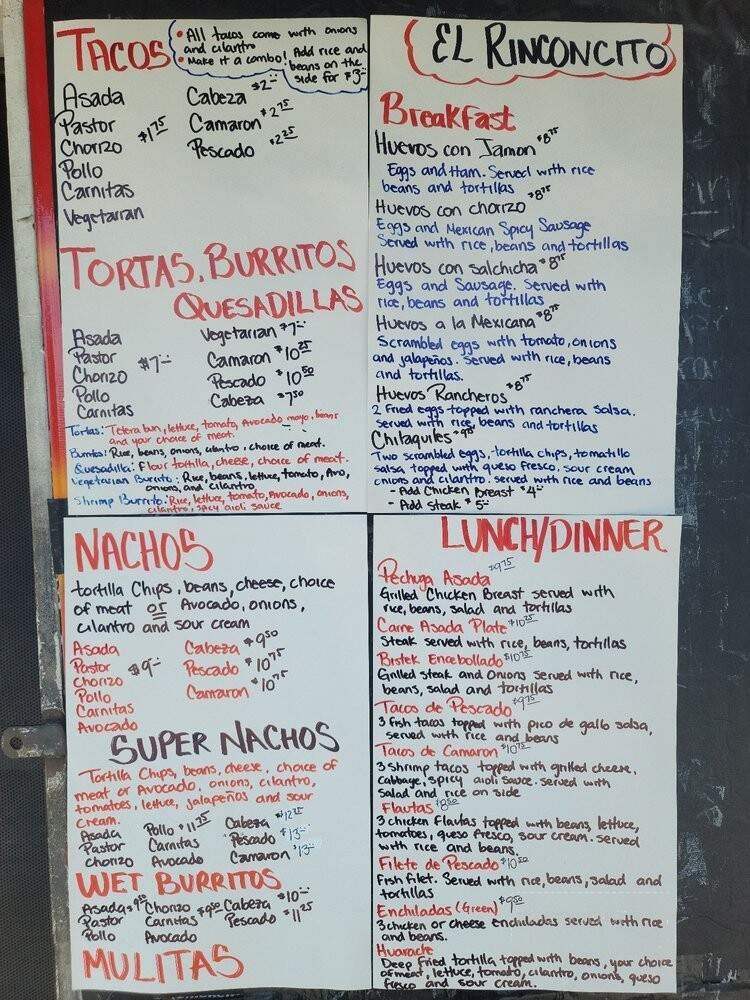 TACOS
• All tacos come with onions
and cilantro
• Make it a combo! Add rice and
beans on the
side for $3
Asada
Pastor
Chorizo $1.75
Pollo
Carnitas
Vegetarian
Cabeza $2
Camaron $2.75
Pescado $2.25
TORTAS, BURRITOS
QUESADILLAS
Asada
Pastor
Chorizo $7
Pollo
Carnitas
Vegetarian $7
Camaron $10.25
Pescado $10.50
Cabeza $7.50
Tortas: Telera bun, lettuce, tomato, Avocado mayo, beans
and your choice of meat.
Burritos: Rice, beans, onions, cilantro, choice of meat.
Quesadilla: Flour tortilla, cheese, choice of meat.
Vegetarian Burrito: Rice, beans, lettuce, tomato, Avo,
onions, and cilantro
Shrimp Burrito: Rice, lettuce, tomato, Avocado, onions,
cilantro, spicy aioli sauce
EL RINCONCITO
Breakfast
Huevos con Jamon $8.75
Eggs and Ham. Served with rice
beans and tortillas
Huevos con chorizo $8.75
Eggs and Mexican Spicy Sausage
Served with rice, beans and tortillas
Huevos con salchicha $8.75
Eggs and Sausage. Served with
rice, beans and tortillas
Huevos a la Mexicana $8.75
Scrambled eggs with tomato, onions
and jalapeños. Served with rice, beans
and tortillas.
Huevos Rancheros $8.75
2 Fried eggs topped with ranchera salsa.
served with rice, beans and tortillas
Chilaquiles
Two scrambled eggs, tortilla chips, tomatillo
salsa topped with queso fresco, sour cream
onions and cilantro. served with rice and beans
- Add Chicken Breast $4
- Add Steak $5
NACHOS
tortilla Chips, beans, cheese, choice
of meat or Avocado, onions,
cilantro and sour cream
Asada
Pastor
Chorizo $9
Pollo
Carnitas
Avocado
Cabeza $9.50
Pescado $10.75
Camaron $10.75
SUPER NACHOS
Tortilla Chips, beans, cheese, choice of
meat or Avocado, onions, cilantro,
tomatoes, lettuce, jalapeños and sour
cream.
Asada Pollo $11.25 Cabeza $12.25
Pastor Carnitas Pescado $13
Chorizo Avocado Camaron $13
WET BURRITOS
Asada $9.50 Chorizo $9.50 Cabeza $10
Pastor Carnitas Pescado $11.25
Pollo Avocado
MULITAS
LUNCH/DINNER
Pechuga Asada $9.75
Grilled Chicken Breast served with
rice, beans, salad and tortillas
Carne Asada Plate $10.25
Steak served with rice, beans, tortillas
Bistek Encebollado $10.75
Grilled steak and Onions served with rice,
beans, salad and tortillas
Tacos de Pescado $9.75
3 fish tacos topped with pico de gallo salsa,
served with rice and beans
Tacos de Camaron $10.75
3 shrimp tacos topped with grilled cheese,
cabbage, spicy aioli sauce. served with
salad and rice on side
Flautas $8.50
3 chicken Flautas topped with beans, lettuce,
tomatoes, queso fresco, sour cream. served
with rice and beans.
Filete de Pescado $10.50
Fish filet. Served with rice, beans, salad and
tortillas
Enchiladas (Green) $9.50
3 chicken or cheese enchiladas served with rice
and beans.
Huarache
Deep fried tortilla topped with beans, your choice
of meat, lettuce, tomato, cilantro, onions, queso
fresco and sour cream.